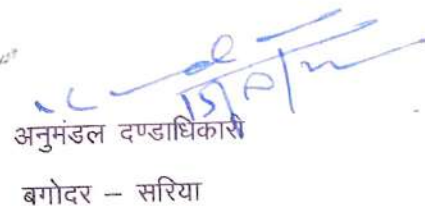 अनुमंडल दण्डाधिकारी
बगोदर – सरिया